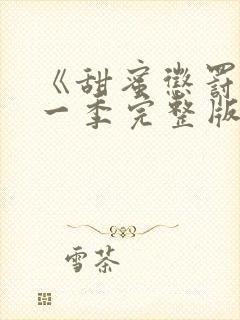 《甜蜜惩罚
一季完整版
雪茶